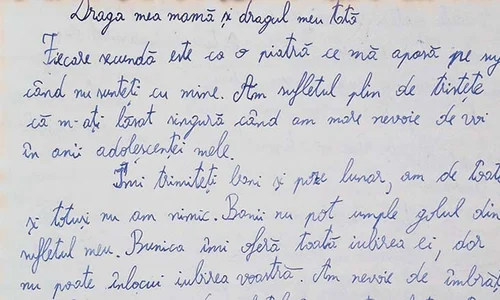 Draga mea mamă și dragul meu tată
Fiecare secundă este ca o piatră ce mă apasă pe
când nu sunteți cu mine. Am sufletul plin de tristețe
că m-ați lăsat singură când am mare nevoie de voi
în anii adolescenței mele.
Îmi trimiteți bani și poze lunar, am de toate
și totuși nu am nimic. Banii nu pot umple golul din
sufletul meu. Bunica îmi oferă toată iubirea ei, dar
nu poate înlocui iubirea voastră. Am nevoie de